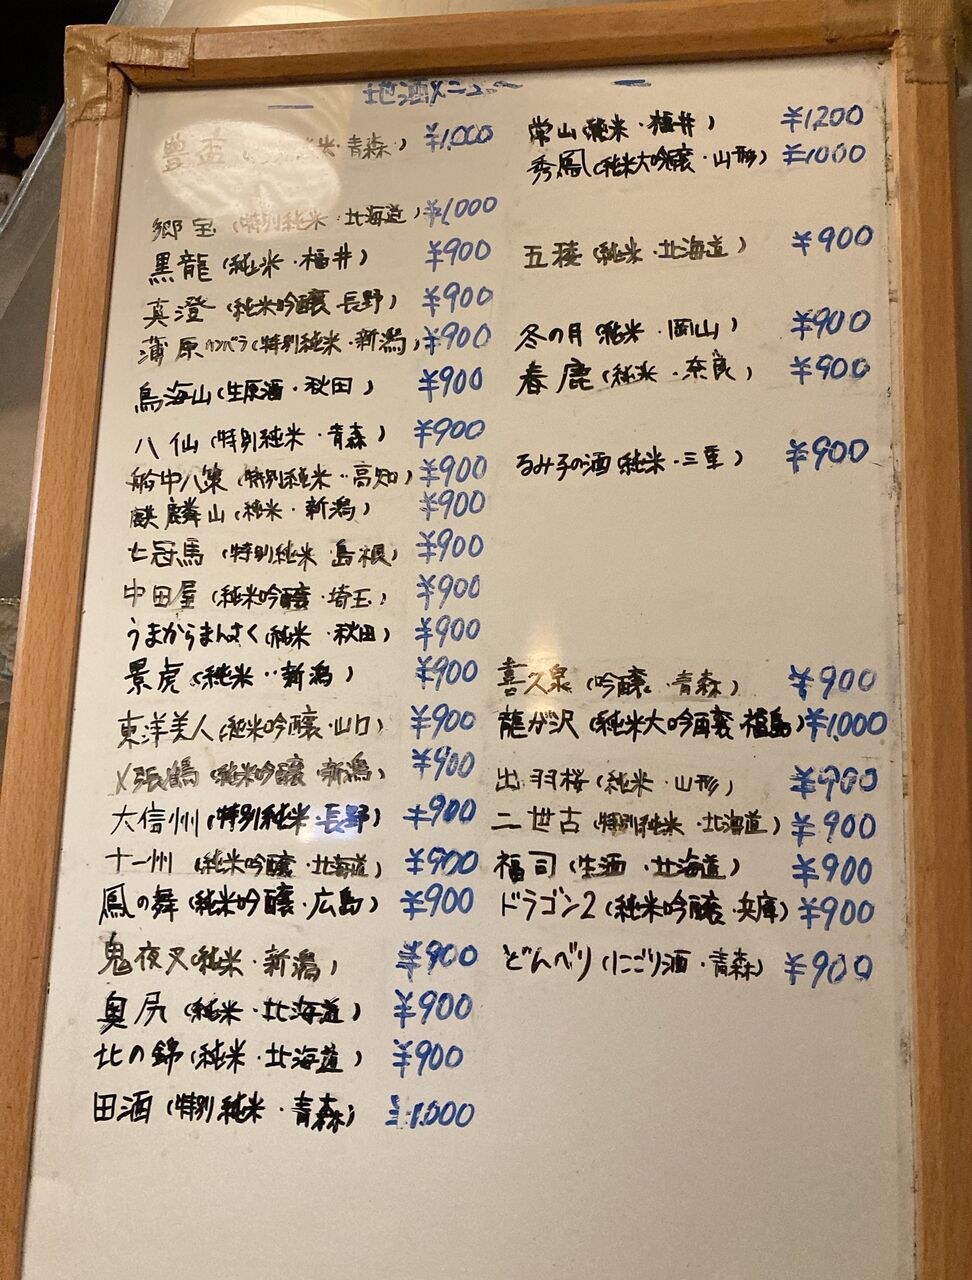 地酒メニュー
豊盃 米・青森) ¥1,000
郷宝(特別純米・北海道) ¥1000
黒龍(純米・福井) ¥900
真澄(純米吟醸 長野) ¥900
蒲原(特別純米・新潟) ¥900
鳥海山(生原酒・秋田) ¥900
八仙(特別純米・青森) ¥900
船中八策(特別純米・高知) ¥900
麒麟山(純米・新潟) ¥900
七冠馬(特別純米 島根) ¥900
中田屋(純米吟醸・埼玉) ¥900
うまからまんさく(純米・秋田) ¥900
景虎(純米・新潟) ¥900
東洋美人(純米吟醸・山口) ¥900
〆張鶴(純米吟醸 新潟) ¥900
大信州(特別純米・長野) ¥900
十一州(純米吟醸・北海道) ¥900
鳳の舞(純米吟醸・広島) ¥900
鬼夜叉(純米・新潟) ¥900
奥尻(純米・北海道) ¥900
北の錦(純米・北海道) ¥900
田酒(特別純米・青森) ¥1,000
常山(純米・福井) ¥1200
秀鳳(純米大吟醸・山形) ¥1000
五稜(純米・北海道) ¥900
冬の月(純米・岡山) ¥900
春鹿(純米・奈良) ¥900
るみ子の酒(純米・三重) ¥900
喜久泉(吟醸・青森) ¥900
龍が沢(純米大吟醸 福島) ¥1,000
出羽桜(純米・山形) ¥900
二世古(特別純米・北海道) ¥900
福司(生酒・北海道) ¥900
ドラゴン2(純米吟醸・兵庫) ¥900
どんべり(にごり酒・青森) ¥900